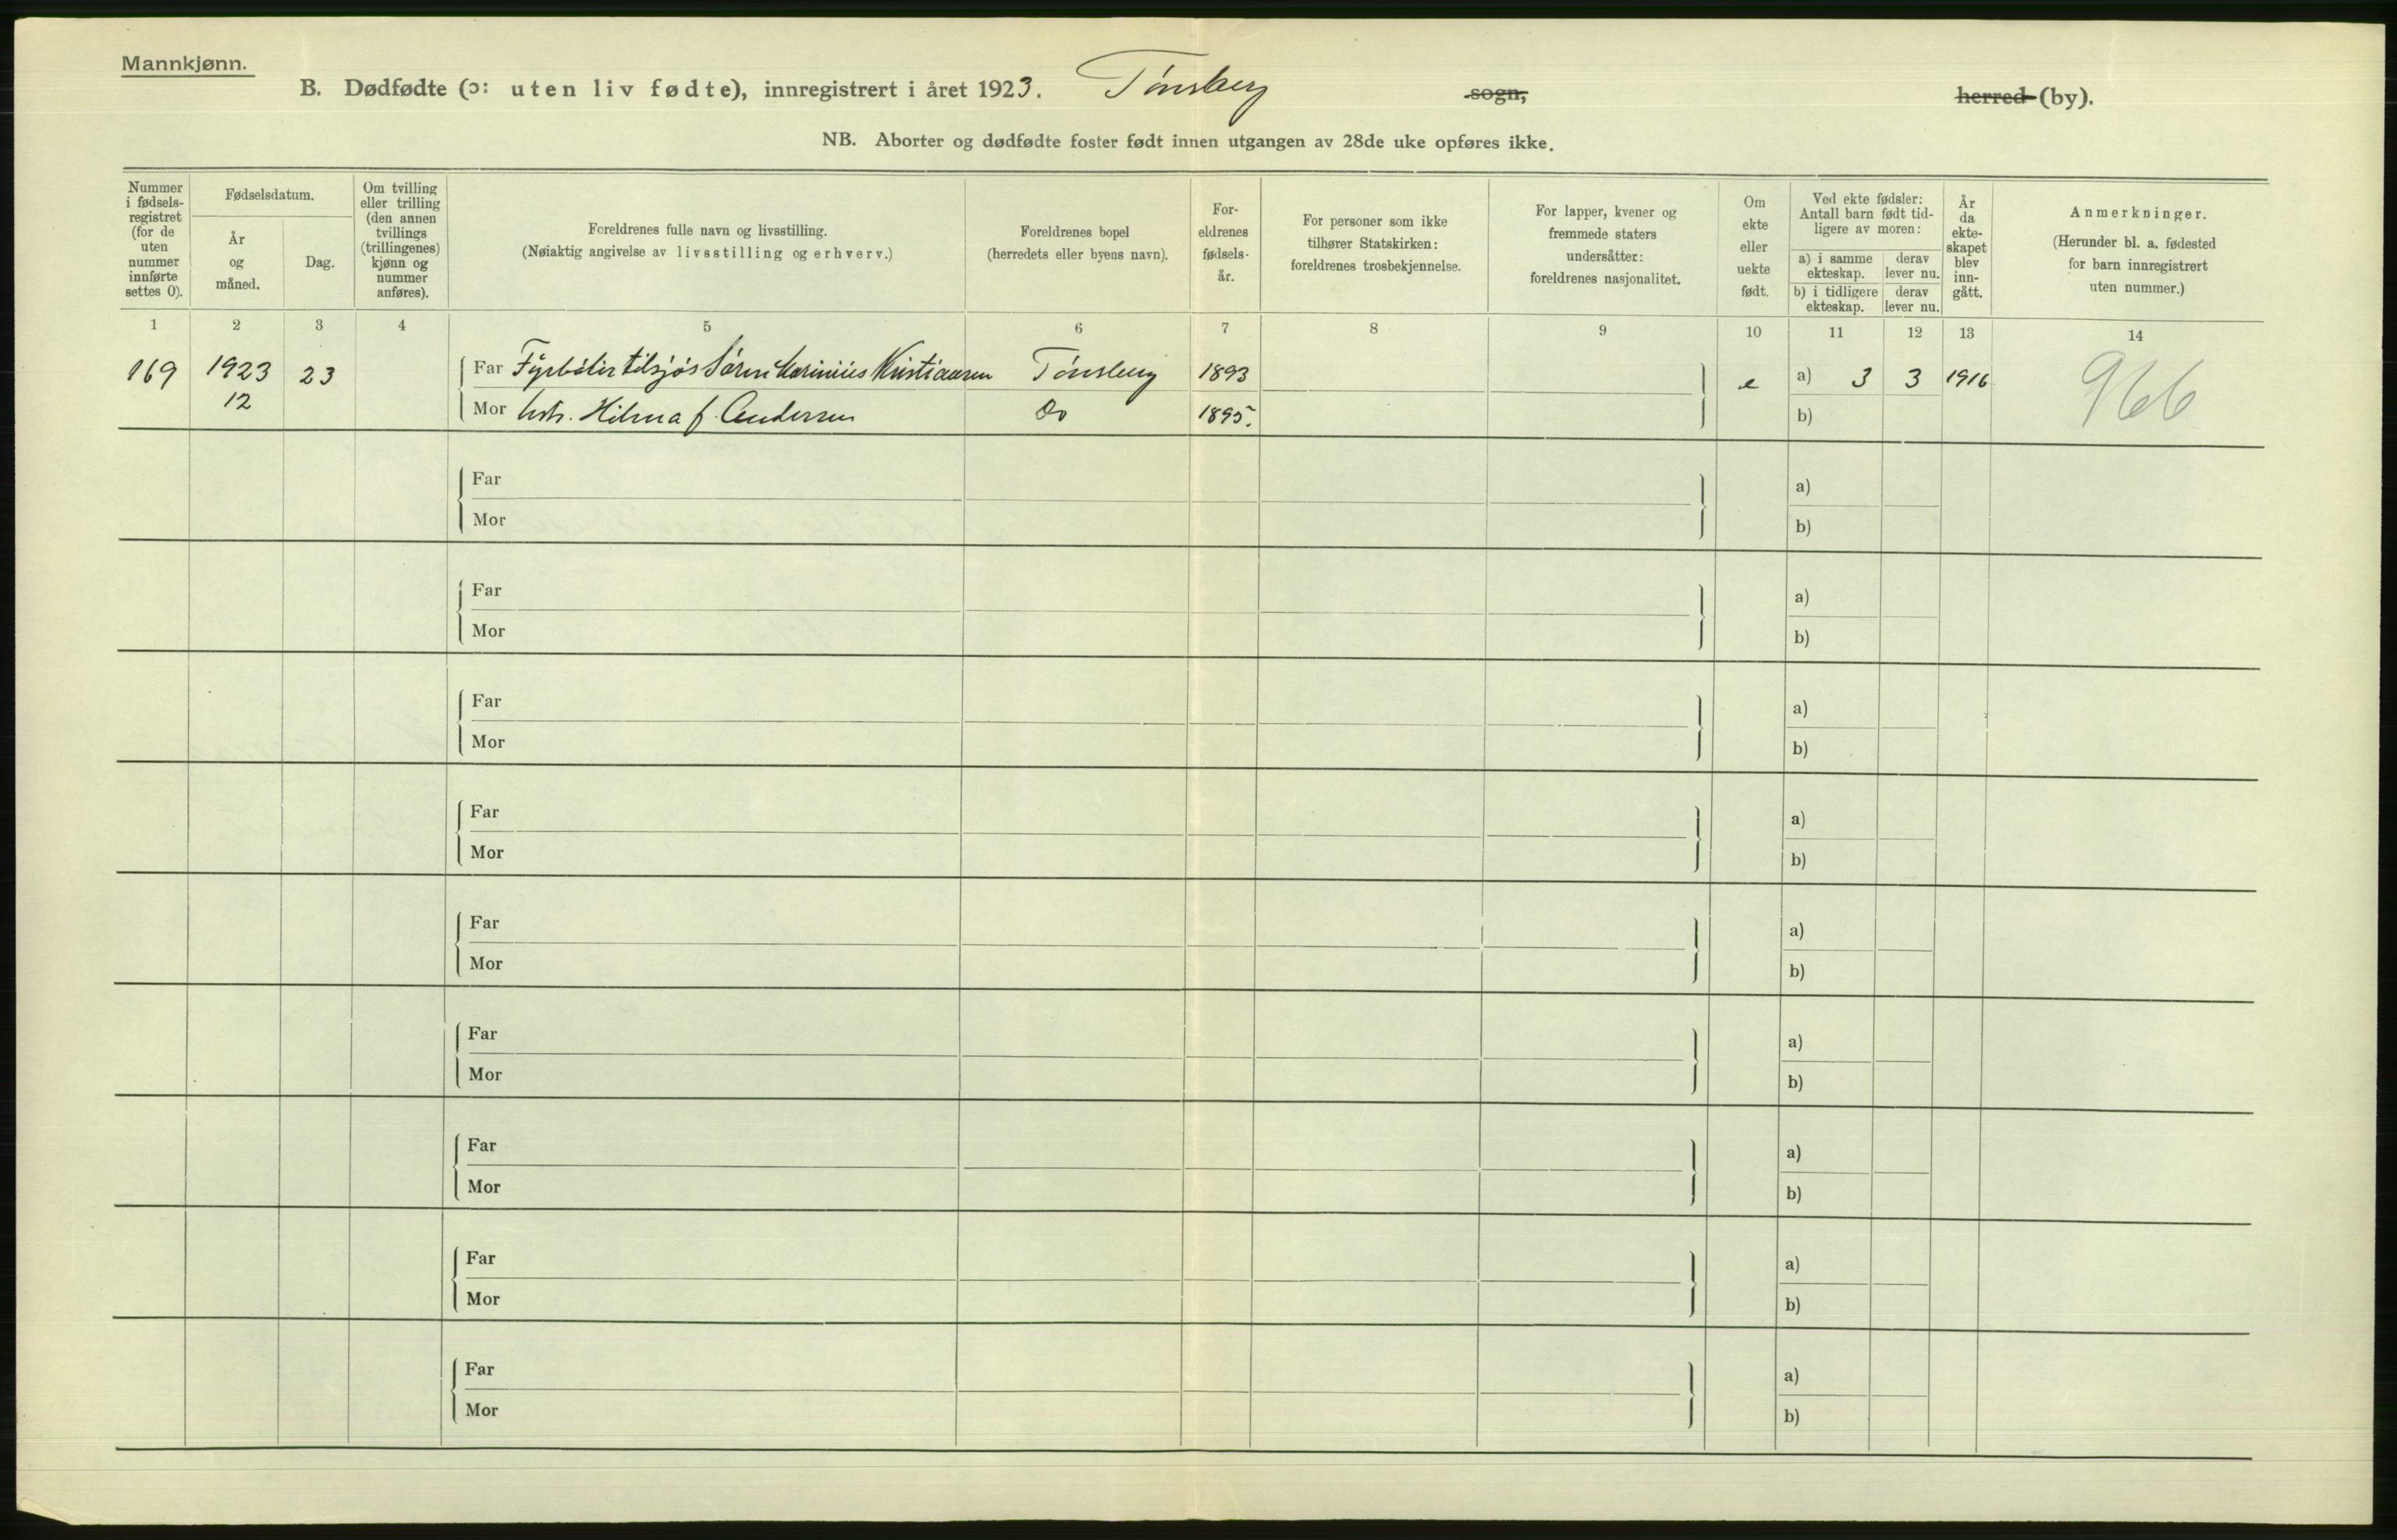 Mannkjønn.
B. Dødfødte (ɔ: uten liv fødte), innregistrert i året 1923. Tønsberg sogn, herred (by).
NB. Aborter og dødfødte foster født innen utgangen av 28de uke opføres ikke.
Nummer
i fødsels-
registret
(for de
uten
nummer
innførte
settes 0).
Fødselsdatum.
År
og
måned.
Dag.
Om tvilling
eller trilling
(den annen
tvillings
(trillingenes)
kjønn og
nummer
anføres).
Foreldrenes fulle navn og livsstilling.
(Nøiaktig angivelse av livsstilling og erhverv.)
Foreldrenes bopel
(herredets eller byens navn).
For-
eldrenes
fødsels-
år.
For personer som ikke
tilhører Statskirken:
foreldrenes trosbekjennelse.
For lapper, kvener og
fremmede staters
undersåtter:
foreldrenes nasjonalitet.
Om
ekte
eller
uekte
født.
Ved ekte fødsler:
Antall barn født tid-
ligere av moren:
a) i samme
ekteskap.
derav
lever nu.
b) i tidligere
ekteskap.
derav
lever nu.
År
da
ekte-
skapet
blev
inn-
gått.
Anmerkninger.
(Herunder bl. a. fødested
for barn innregistrert
uten nummer.)
1 2 3 4 5 6 7 8 9 10 11 12 13 14
169 1923 23 Far Fyrbøter tilsjøs Søren Marinius Kristiansen Tønsberg 1893 e a) 3 3 1916 966
12 Mor Hstr. Hilma f. Andersen Do 1895. b)
Far a)
Mor b)
Far a)
Mor b)
Far a)
Mor b)
Far a)
Mor b)
Far a)
Mor b)
Far a)
Mor b)
Far a)
Mor b)
Far a)
Mor b)
Far a)
Mor b)